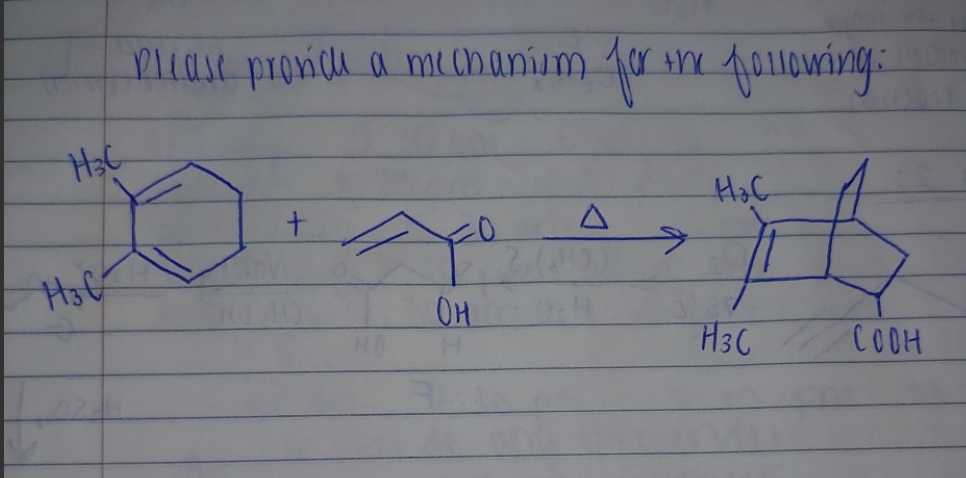 Please provide a mechanism for the following:
H3C
H3C
+
O
OH
Δ
H3C
H3C
COOH